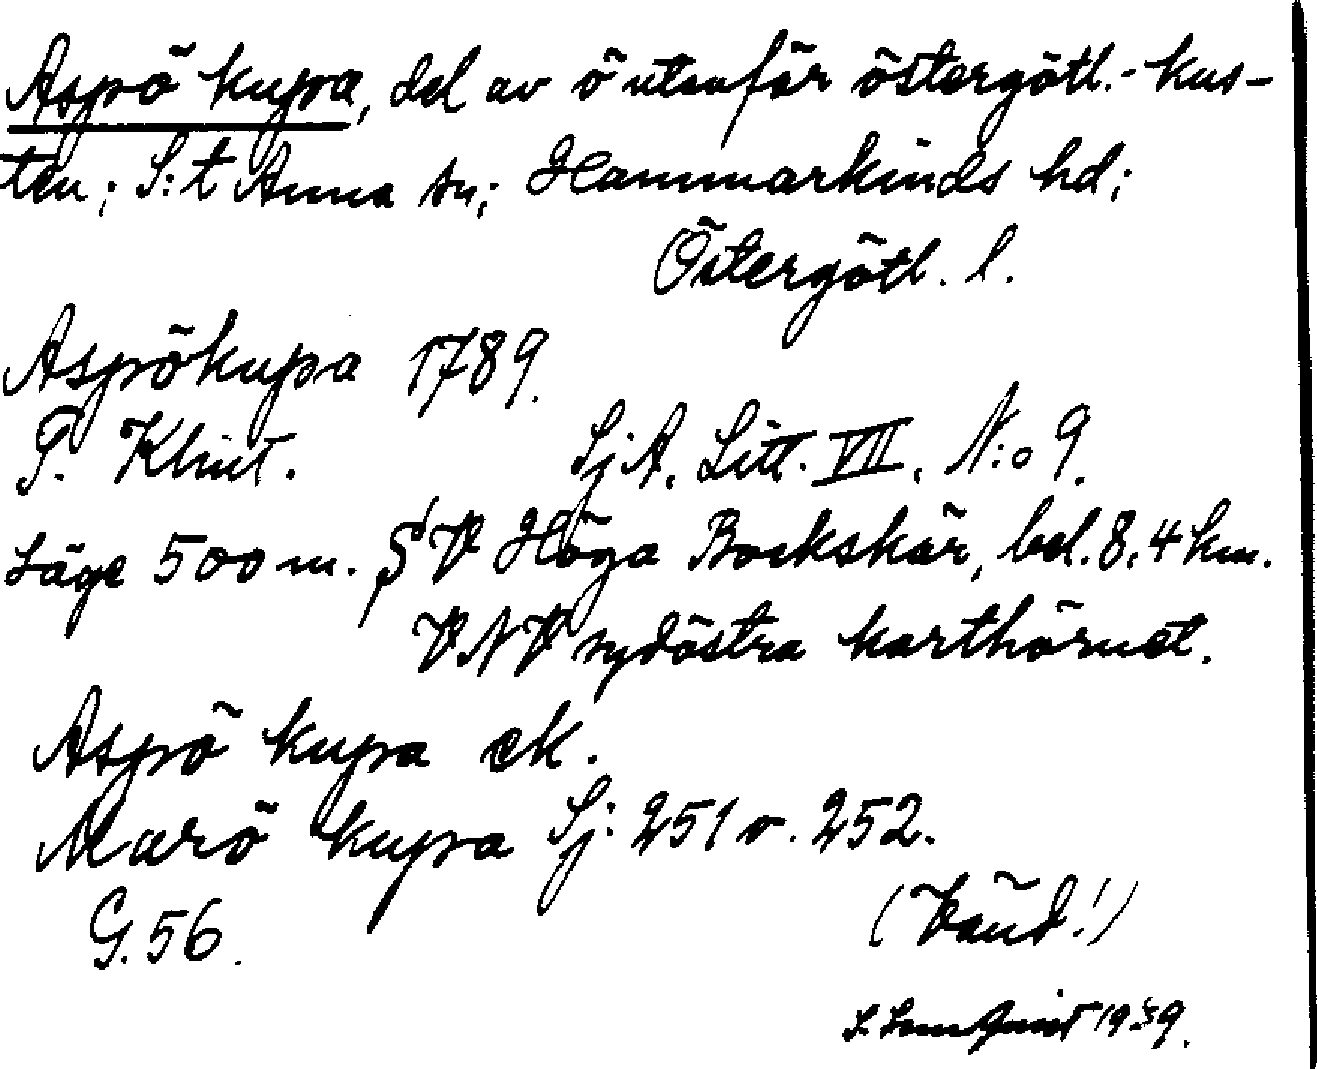 Aspö kupa, del av ö utanför östergötl.- kus-
ten; S:t Anna sn; Hammarkinds hd;
Östergötl. l.
Aspökupa 1789.
P. Klint. SjA. Litt. VII. N:o 9.
Läge 500 m. SV Höga Bockskär, bel. 8,4 km.
VNV sydöstra karthörnet.
Aspö kupa ek.
Marö kupa Sj: 251 o. 252.
G. 56.
(Vänd!)
1939.